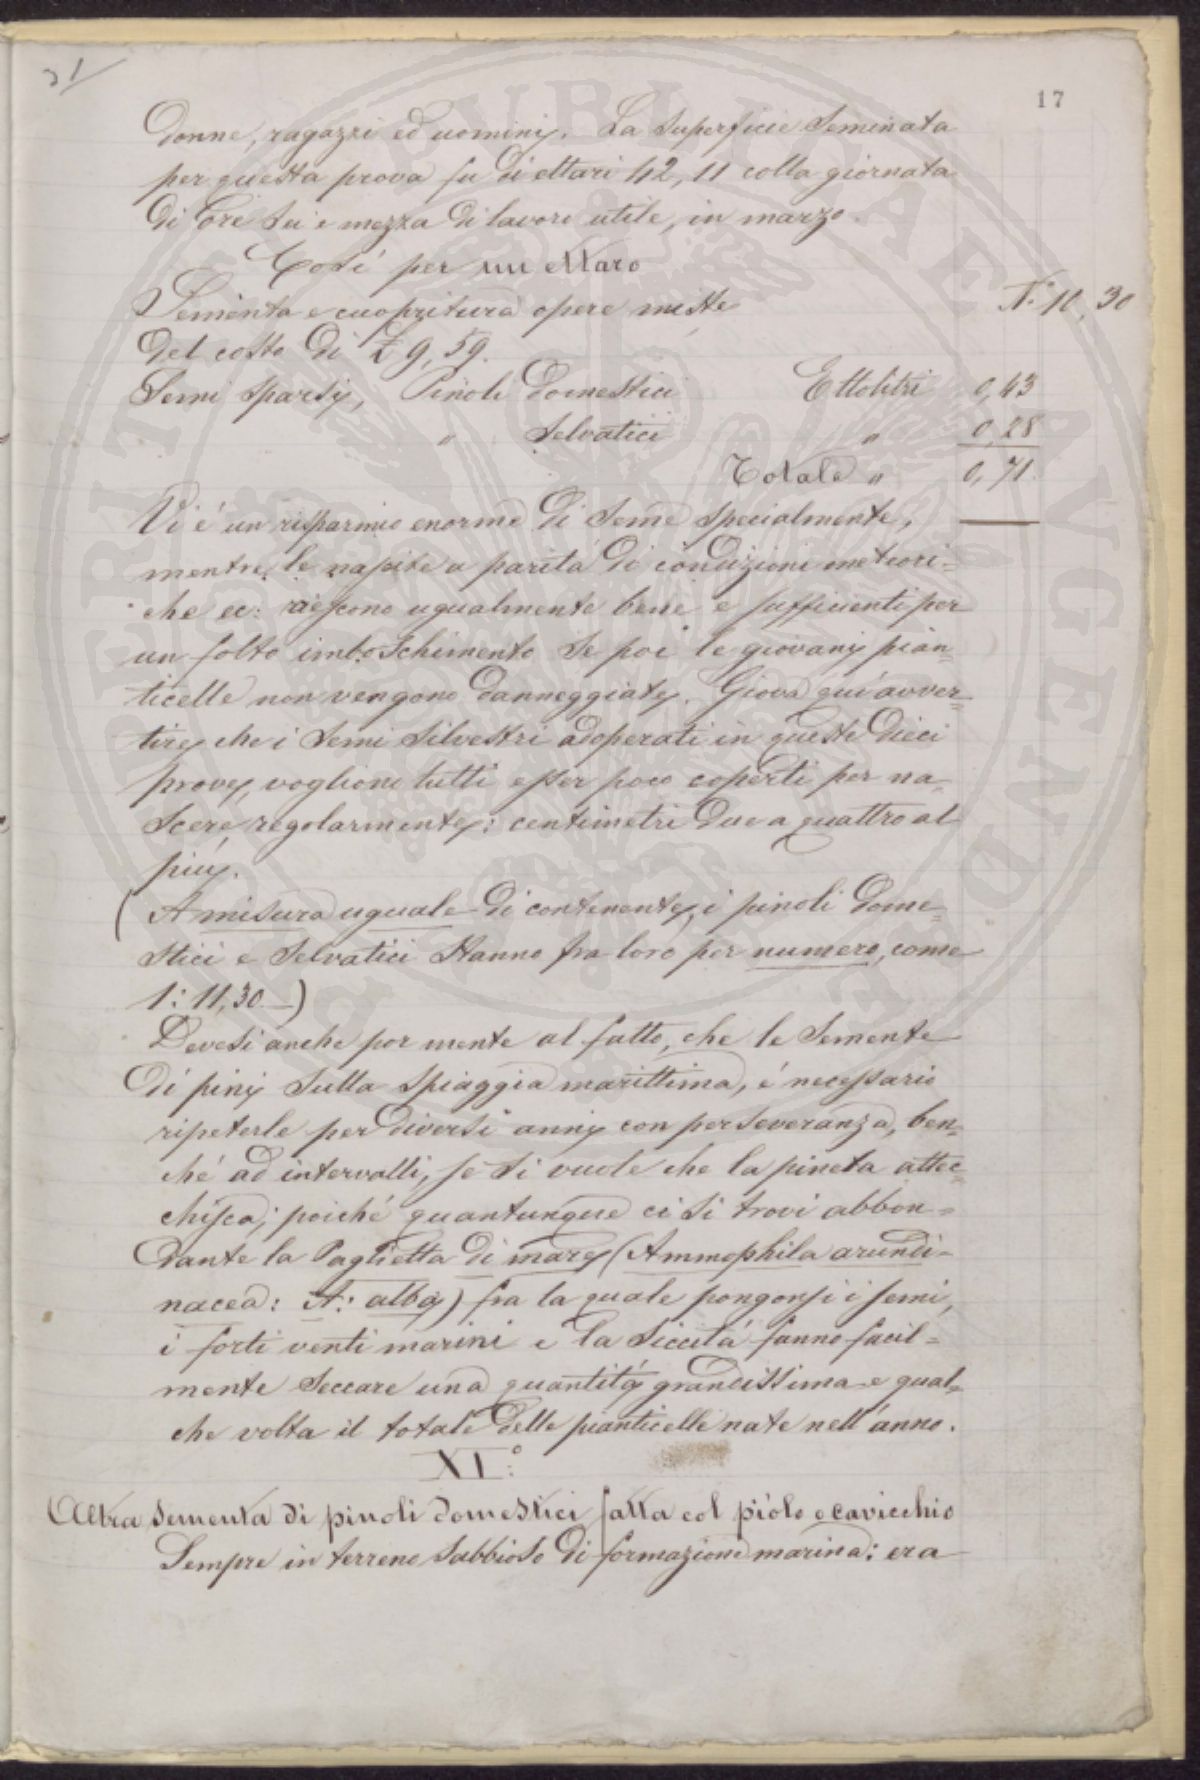 31
17
donne, ragazzi ed uomini. La superficie seminata
per questa prova fu di ettari 42, 11 colla giornata
di ore sei e mezza di lavoro utile, in marzo.
Così per un ettaro
Sementa e cuopritura opere miste N.° 10, 30
del costo di £ 9, 59.
Semi sparsi, Pinoli domestici Ettolitri 0,43
" Selvatici " 0,28
Totale " 0,71.
Vi é un risparmio enorme di seme specialmente,
mentre le nascite a parità di condizioni meteori=
che ec: riescono ugualmente bene e sufficienti per
un folto imboschimento se poi le giovani pian=
ticelle non vengono danneggiate. Giova quí avver=
tire che i semi silvestri adoperati in queste dieci
prove, vogliono tutti esser poco coperti per na=
scere regolarmente: centimetri due a quattro al
più.
(A misura uguale di contenente, i pinoli dome=
stici e selvatici stanno fra loro per numero, come
1: 11,30 —)
Devesi anche por mente al fatto, che le semente
di pini sulla spiaggia marittima, é necessario
ripeterle per diversi anni con perseveranza, ben=
ché ad intervalli, se si vuole che la pineta attec=
chisca; poiché quantunque ci si trovi abbon=
dante la Paglietta di mare (Ammophila arundi=
nacea: A: alba) fra la quale pongonsi i semi,
i forti venti marini e la siccità fanno facil=
mente seccare una quantità grandissima e qual=
che volta il totale delle pianticelle nate nell'anno.
XI.°
Altra sementa di pinoli domestici fatta col piòlo o cavicchio
Sempre in terreno sabbioso di formazione marina: era